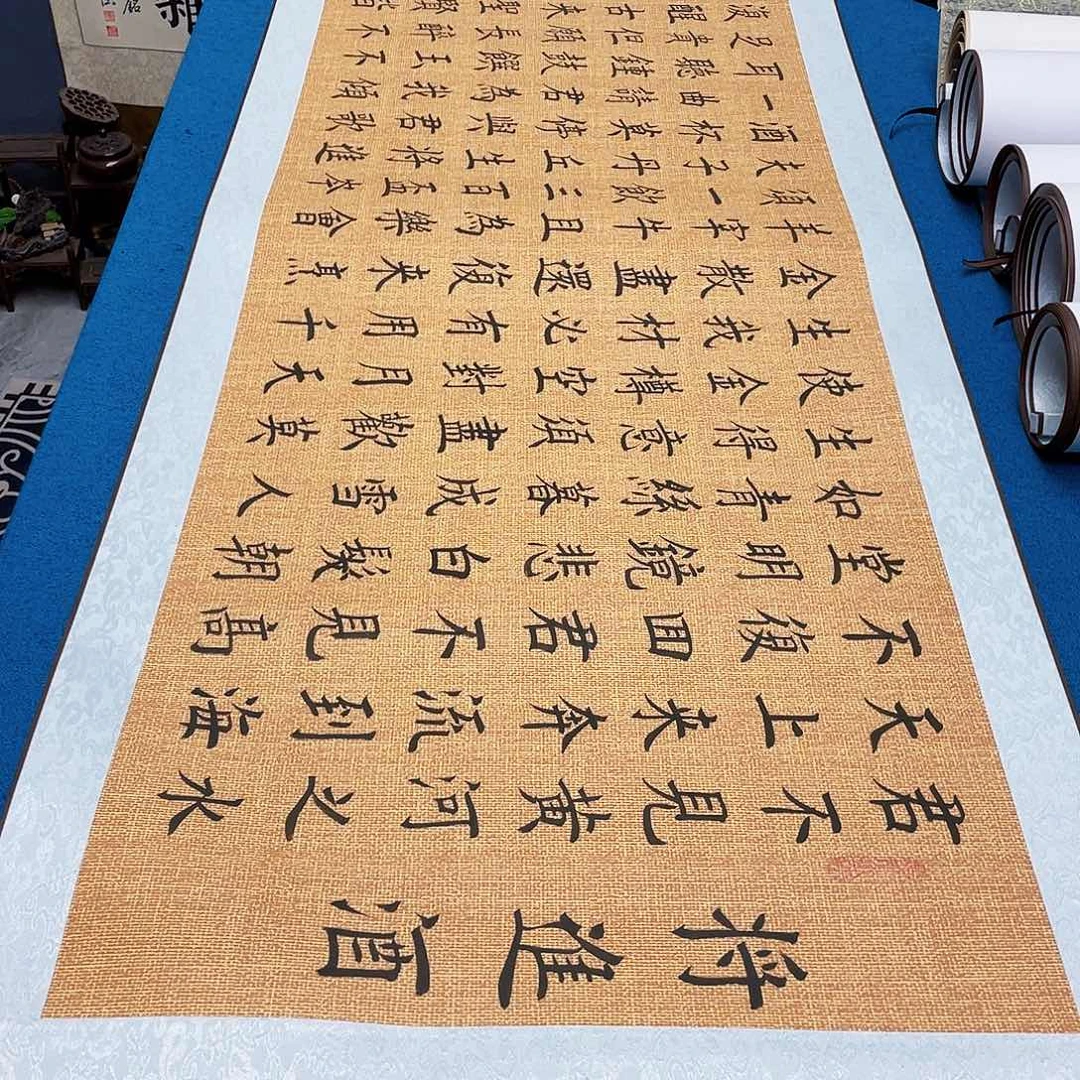 將進酒
君不見黃河之水
天上来奔流到海
不復回君不見高
堂明鏡悲白髮朝
如青絲暮成雪人
生得意須盡歡莫
使金樽空對月天
生我材必有用千
金散盡還復来烹
羊宰牛且為樂會
須一飲三百盃岑
夫子丹丘生將進
酒杯莫停與君歌
一曲請君為我傾
耳聽鐘鼓饌玉不
足貴但願長醉不
復醒古来聖賢皆